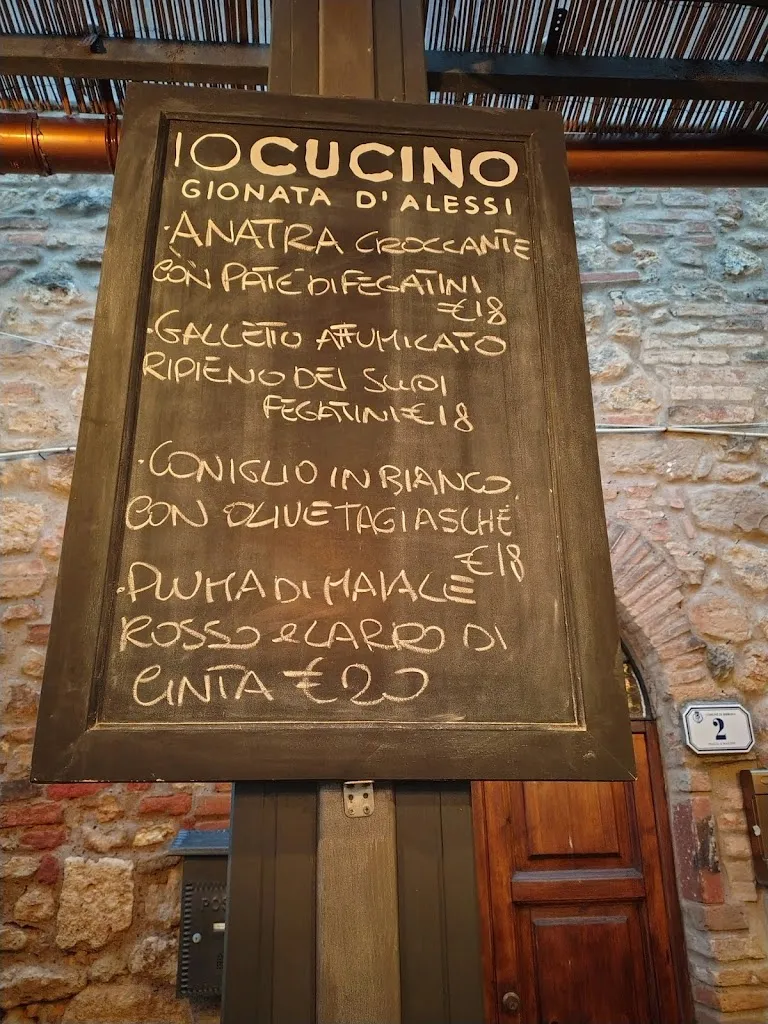 IO CUCINO
GIONATA D'ALESSI
· ANATRA CROCCANTE
CON PATÉ DI FEGATINI
€18
· GALLETTO AFFUMICATO
RIPIENO DEI SUOI
FEGATINI €18
· CONIGLIO IN BIANCO
CON OLIVE TAGIASCHE
€18
· PLUMA DI MAIALE
ROSSO e CARRO DI
CINTA €20
2